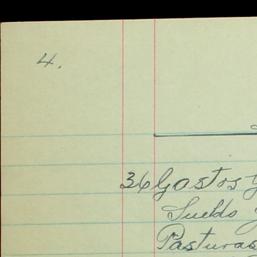 4.
36 Gastos y
Sueldo
Pasturas